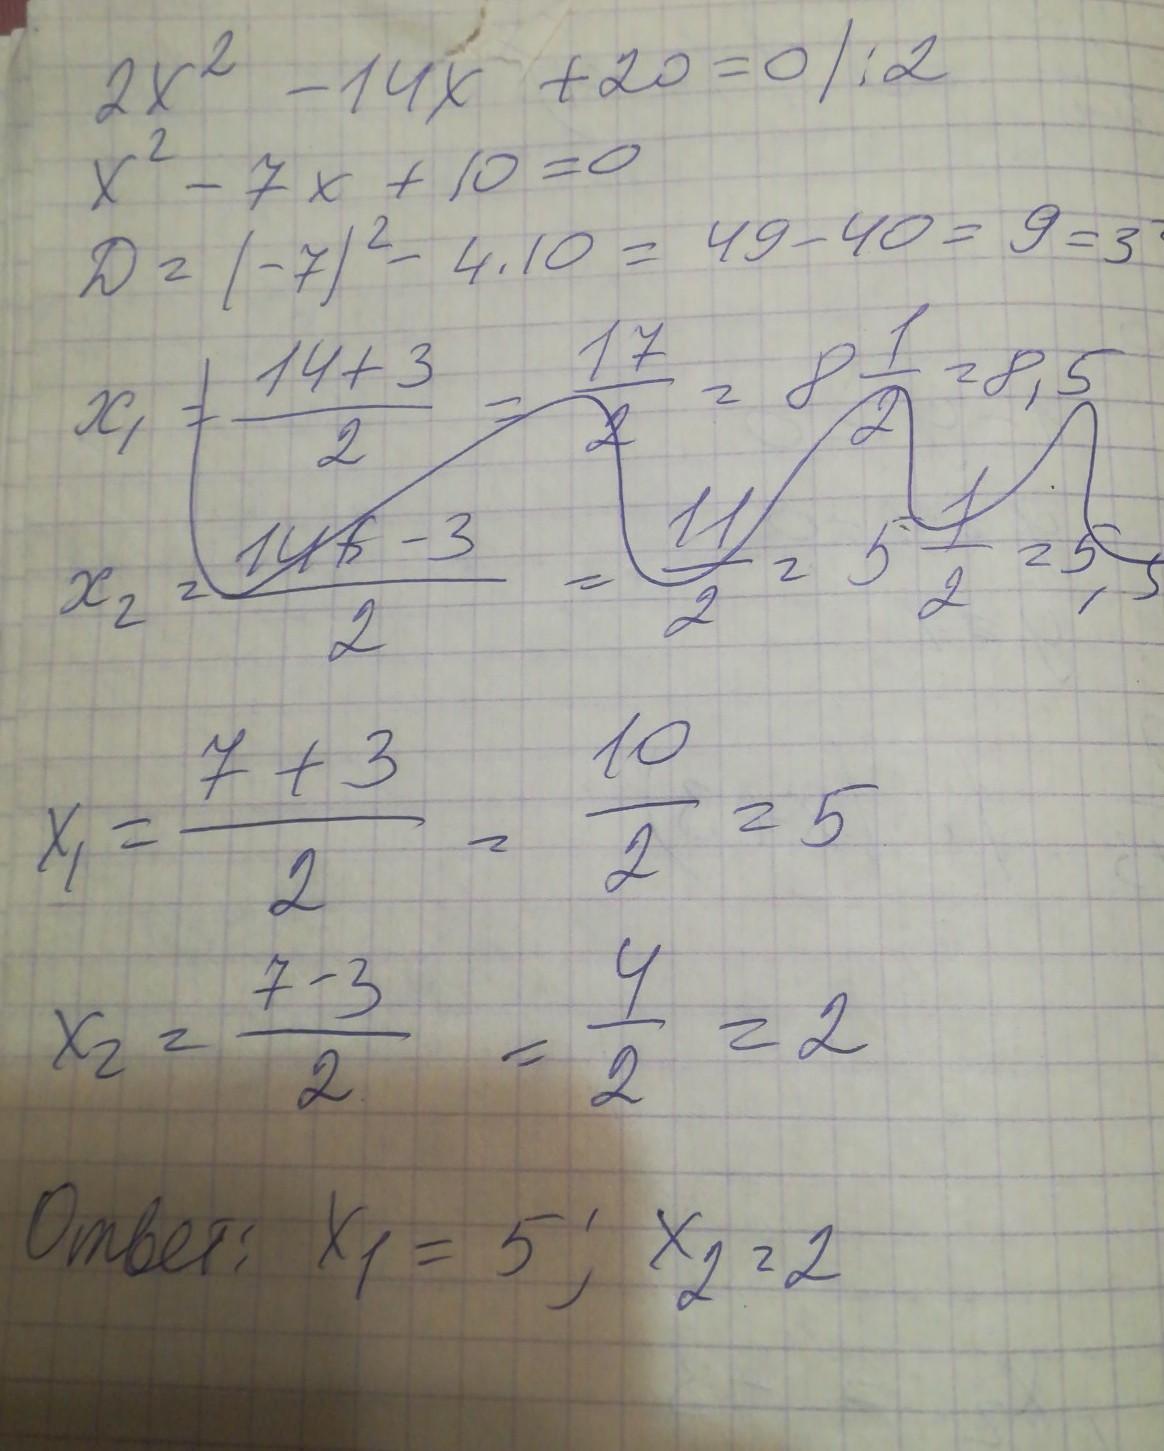 2x² - 14x + 20 = 0 /:2
x² - 7x + 10 = 0
D = (-7)² - 4.10 = 49 - 40 = 9 = 3²
x₁ = 14+3/2 = 17/2 = 8 1/2 = 8,5
x₂ = 14 - 3/2 = 11/2 = 5 1/2 = 5,5
x₁ = 7+3/2 = 10/2 = 5
x₂ = 7-3/2 = 4/2 = 2
Ответ: x₁ = 5; x₂ = 2